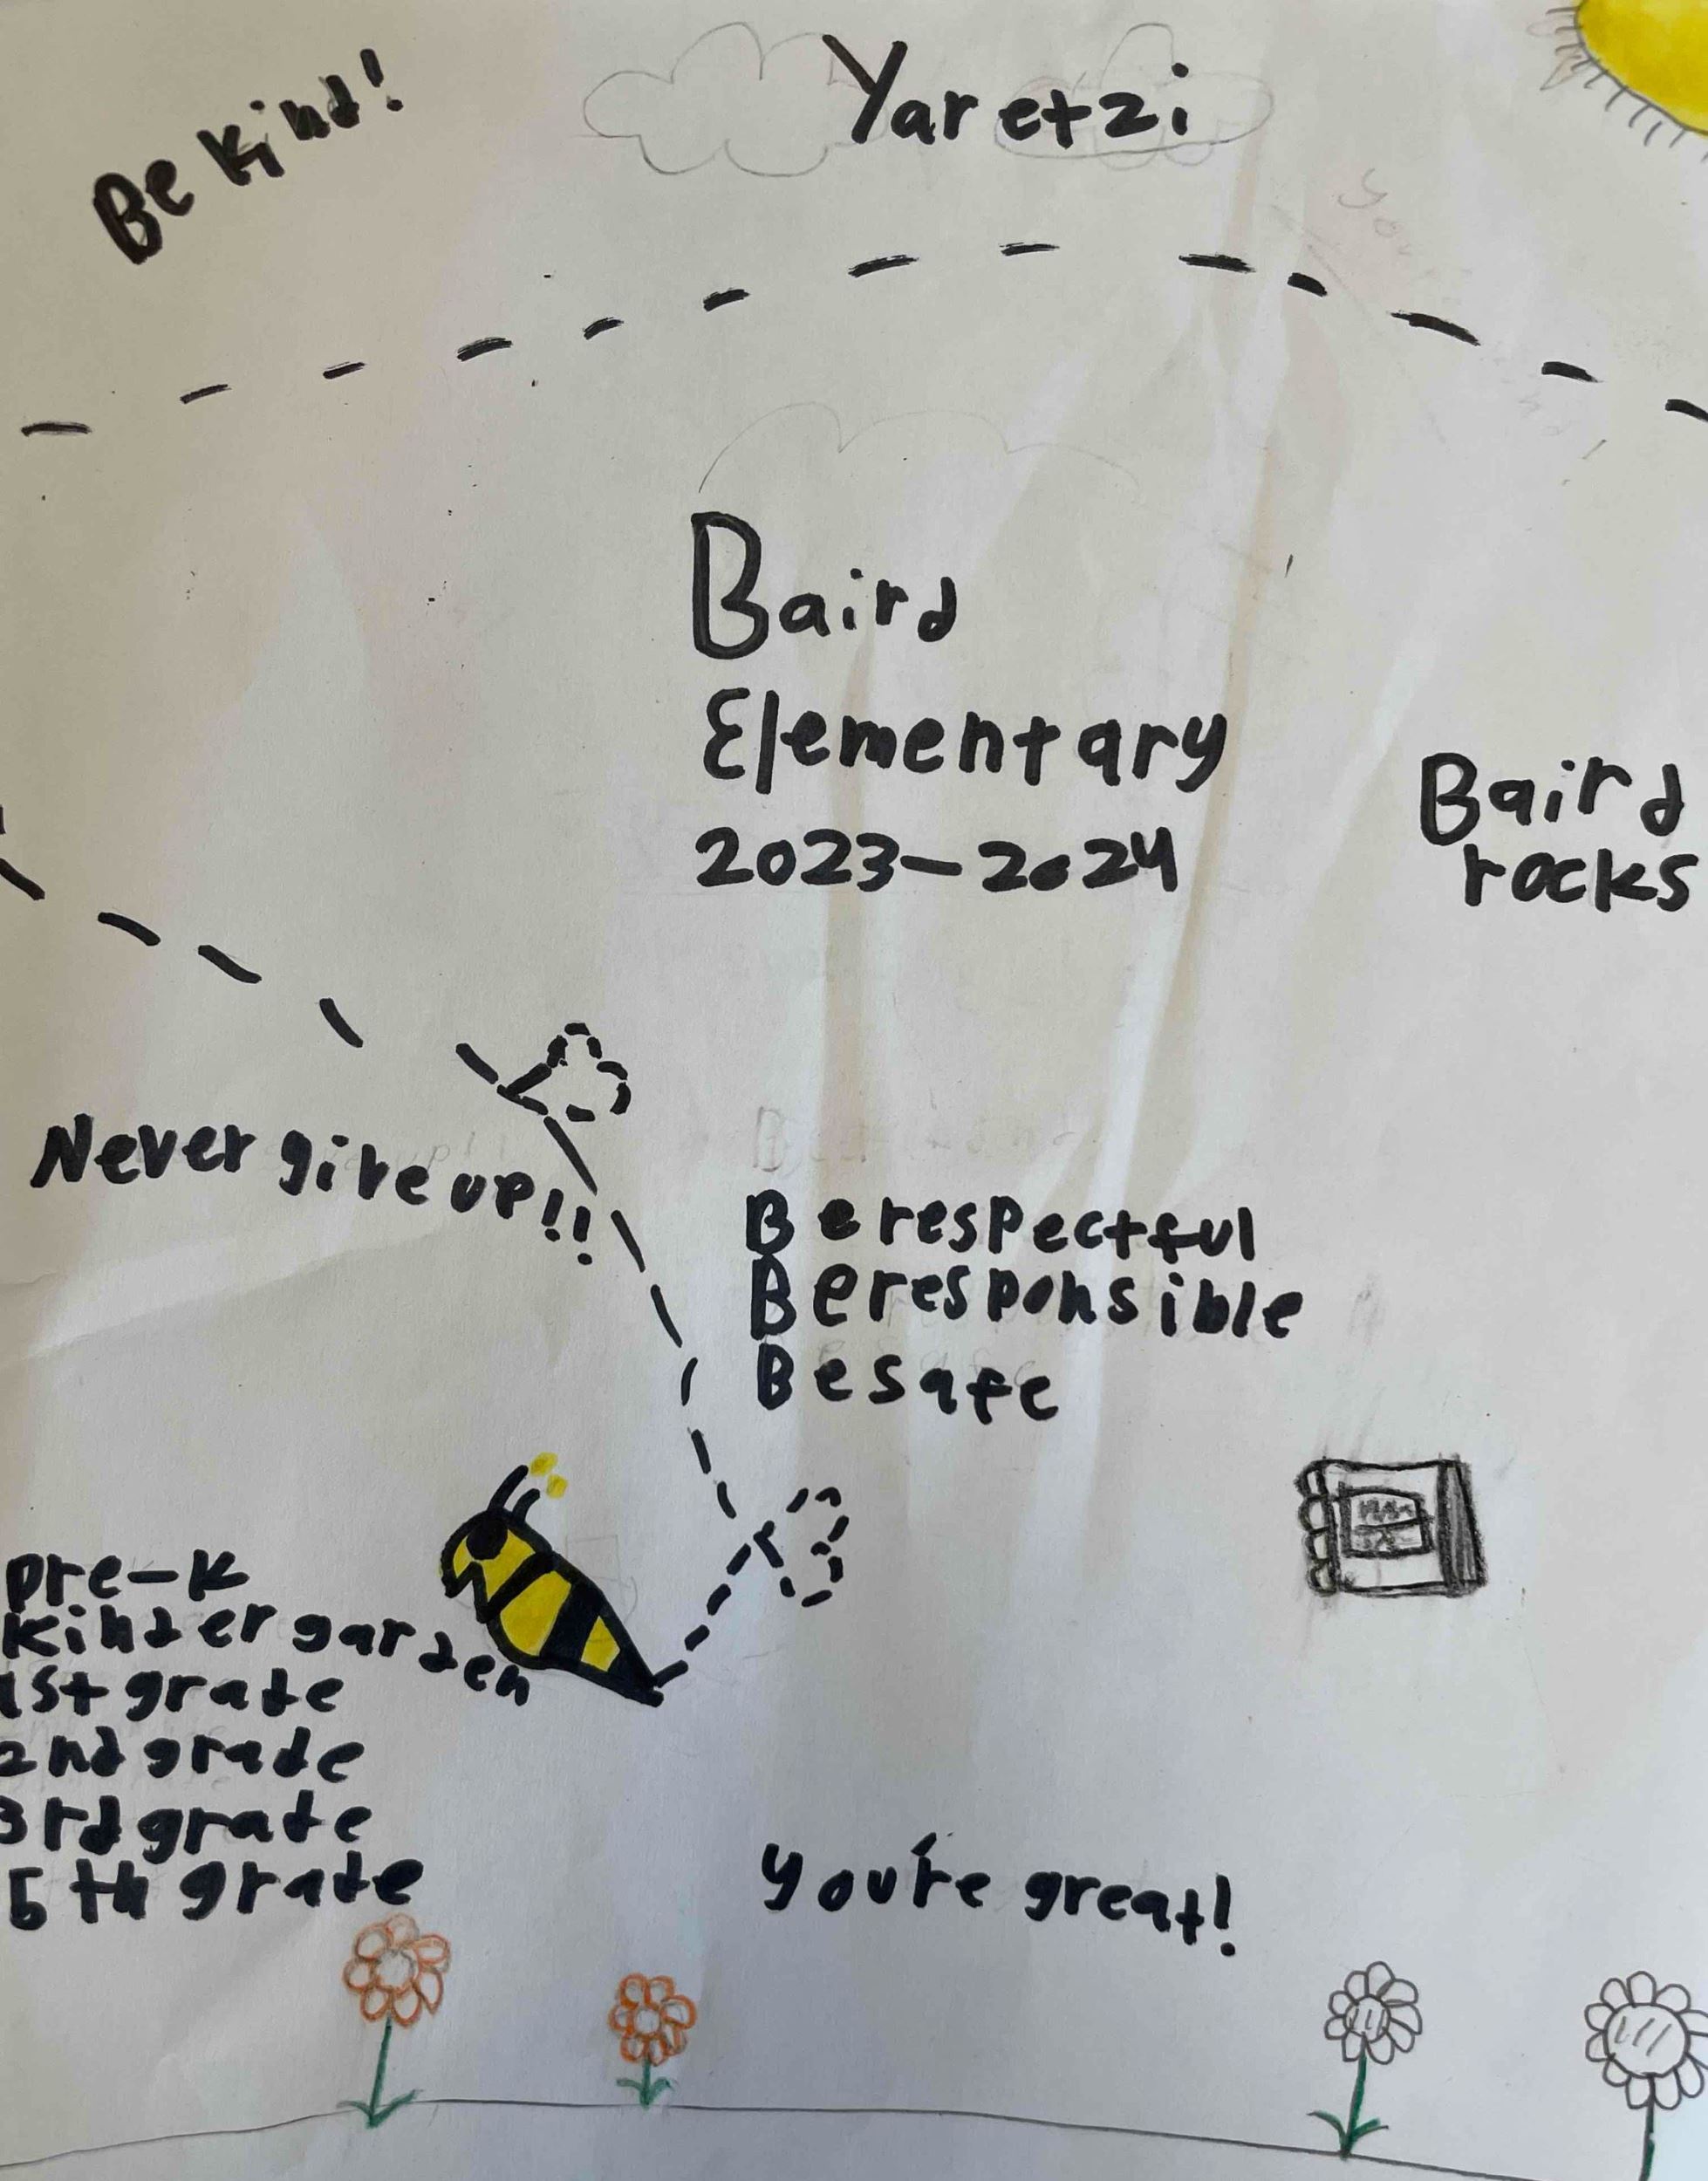 Be kind!
Yaretzi
Baird
Elementary
2023-2024
Baird
rocks
Never give up!!
Be respectful
Be responsible
Be safe
pre-k
kindergarden
1st grade
2nd grade
3rd grade
5th grade
you're great!